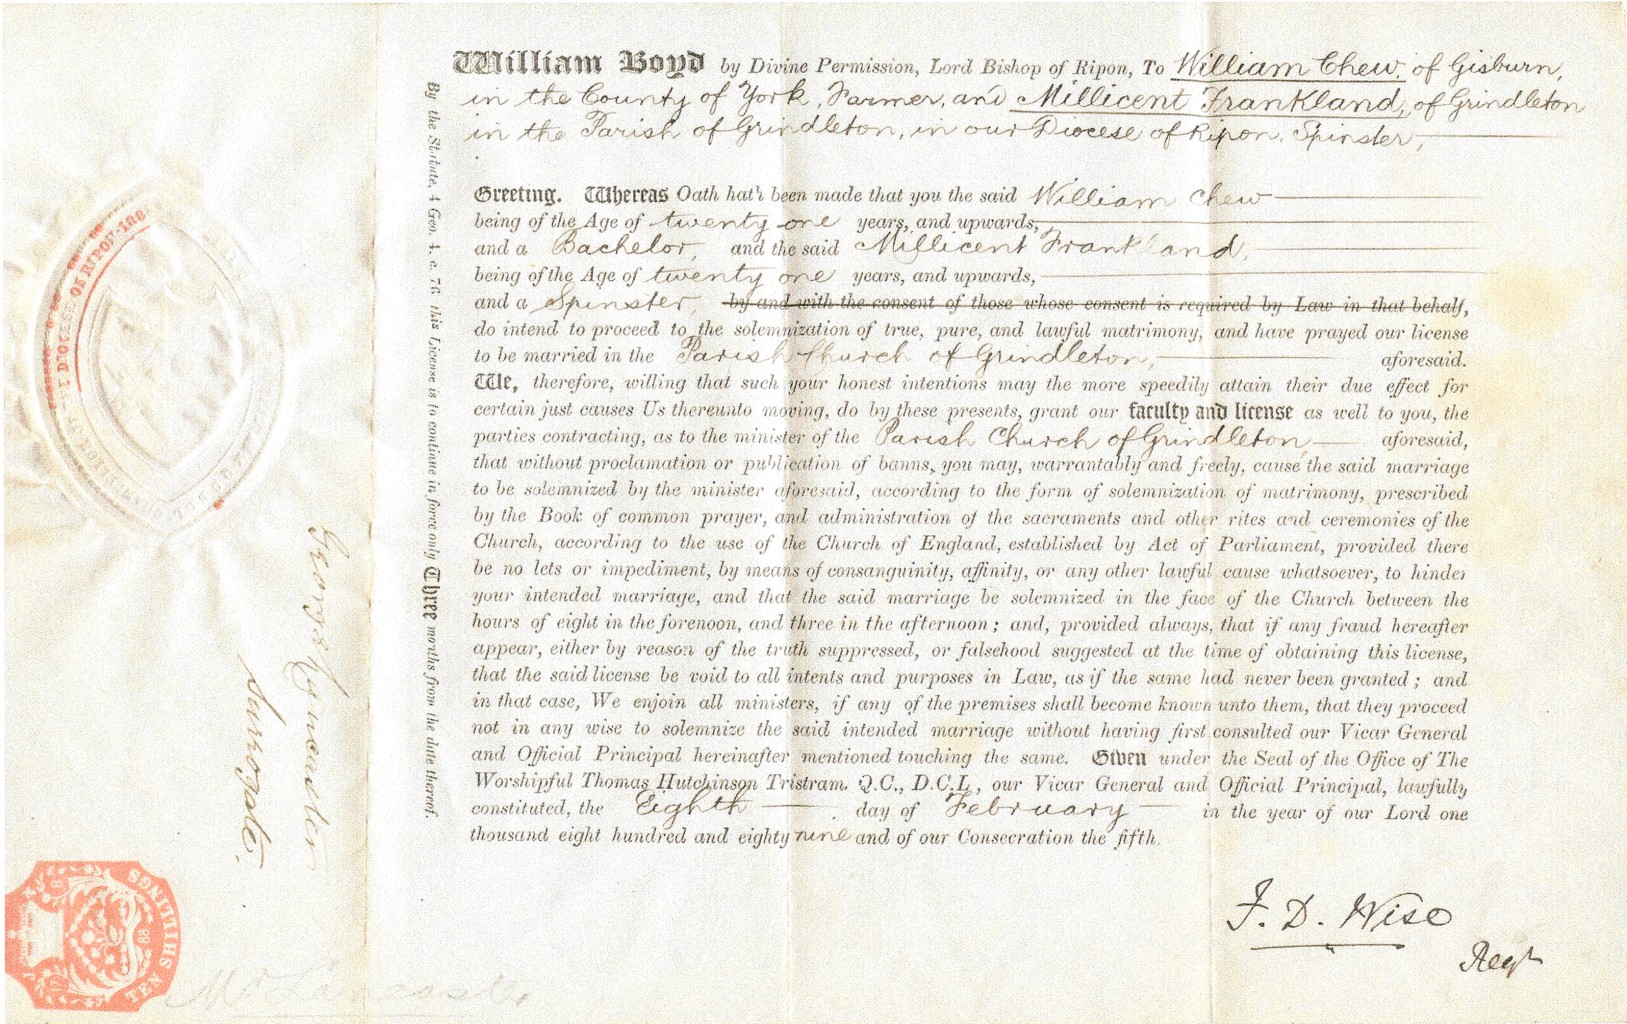 William Boyd by Divine Permission, Lord Bishop of Ripon, To William Chew, of Gisburn,
in the County of York, Farmer, and Millicent Frankland, of Grindleton
in the Parish of Grindleton, in our Diocese of Ripon, Spinster,
Greeting. Whereas Oath hath been made that you the said William Chew
being of the Age of twenty one years, and upwards,
and a Bachelor, and the said Millicent Frankland,
being of the Age of twenty one years, and upwards,
and a Spinster, by and with the consent of those whose consent is required by Law in that behalf,
do intend to proceed to the solemnization of true, pure, and lawful matrimony, and have prayed our license
to be married in the Parish Church of Grindleton, aforesaid.
We, therefore, willing that such your honest intentions may the more speedily attain their due effect for
certain just causes Us thereunto moving, do by these presents, grant our faculty and license as well to you, the
parties contracting, as to the minister of the Parish Church of Grindleton, aforesaid,
that without proclamation or publication of banns, you may, warrantably and freely, cause the said marriage
to be solemnized by the minister aforesaid, according to the form of solemnization of matrimony, prescribed
by the Book of common prayer, and administration of the sacraments and other rites and ceremonies of the
Church, according to the use of the Church of England, established by Act of Parliament, provided there
be no lets or impediment, by means of consanguinity, affinity, or any other lawful cause whatsoever, to hinder
your intended marriage, and that the said marriage be solemnized in the face of the Church between the
hours of eight in the forenoon, and three in the afternoon; and, provided always, that if any fraud hereafter
appear, either by reason of the truth suppressed, or falsehood suggested at the time of obtaining this license,
that the said license be void to all intents and purposes in Law, as if the same had never been granted; and
in that case, We enjoin all ministers, if any of the premises shall become known unto them, that they proceed
not in any wise to solemnize the said intended marriage without having first consulted our Vicar General
and Official Principal hereinafter mentioned touching the same. Given under the Seal of the Office of The
Worshipful Thomas Hutchinson Tristram, Q.C., D.C.L, our Vicar General and Official Principal, lawfully
constituted, the Eighth day of February in the year of our Lord one
thousand eight hundred and eighty nine and of our Consecration the fifth.
F. D. Wise
Regr
By the Statute, 4 Geo. 4. c. 76 this License is to continue in force only Three months from the date thereof.
George Lancaster
Surrogate.
DIOCESE OF RIPON·188
TEN SHILLINGS
88
Mr Lancaster